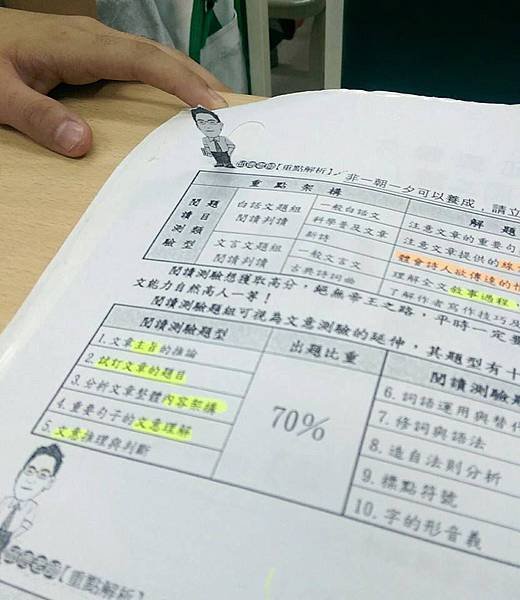 【重點解析】非一朝一夕可以養成，請立
重點架構
解題
閱讀測驗
題目類型
白話文題組
閱讀判讀
一般白話文
科學普及文章
新詩
注意文章的重要句
注意文章提供的線
體會詩人欲傳達的情
文言文題組
閱讀判讀
一般文言文
古典詩詞曲
理解全文敘事過程
了解作者寫作技巧及
閱讀測驗想獲取高分，絕無帝王之路，平時一定要
文能力自然高人一等！
閱讀測驗題組可視為文意測驗的延伸，其題型有十
閱讀測驗題型
出題比重
閱讀測驗題
1. 文章主旨的推論
2. 試訂文章的題目
3. 分析文章整體內容架構
4. 重要句子的文意理解
5. 文意推理與判斷
70%
6. 詞語運用與替代
7. 修詞與語法
8. 造自法則分析
9. 標點符號
10. 字的形音義
【重點解析】